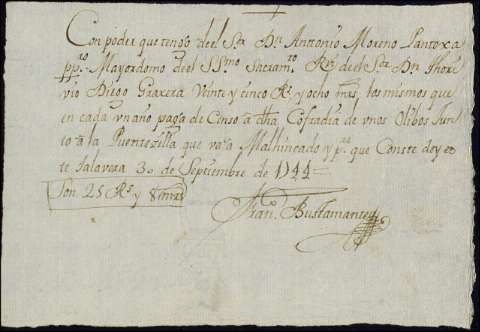 Con poder que tengo del Sr. Dn. Anttonio Moreno Pantoxa
ppro. Mayordomo del SSmo. Sacramto. Rvi. del Sr. Dn. Thori
vio Diego Graxera Veinte y cinco Rs. y ocho mrs. los mismos que
en cada vn año paga de Censo a dha Cofradia de vnos Olibos Jun
to â la Puentezilla que va a Malhincado y pa. que Conste doy es
te Talavera 30 de Septiembre de 1744
Son 25 Rs. y 8 mrs
Frano. Bustamante